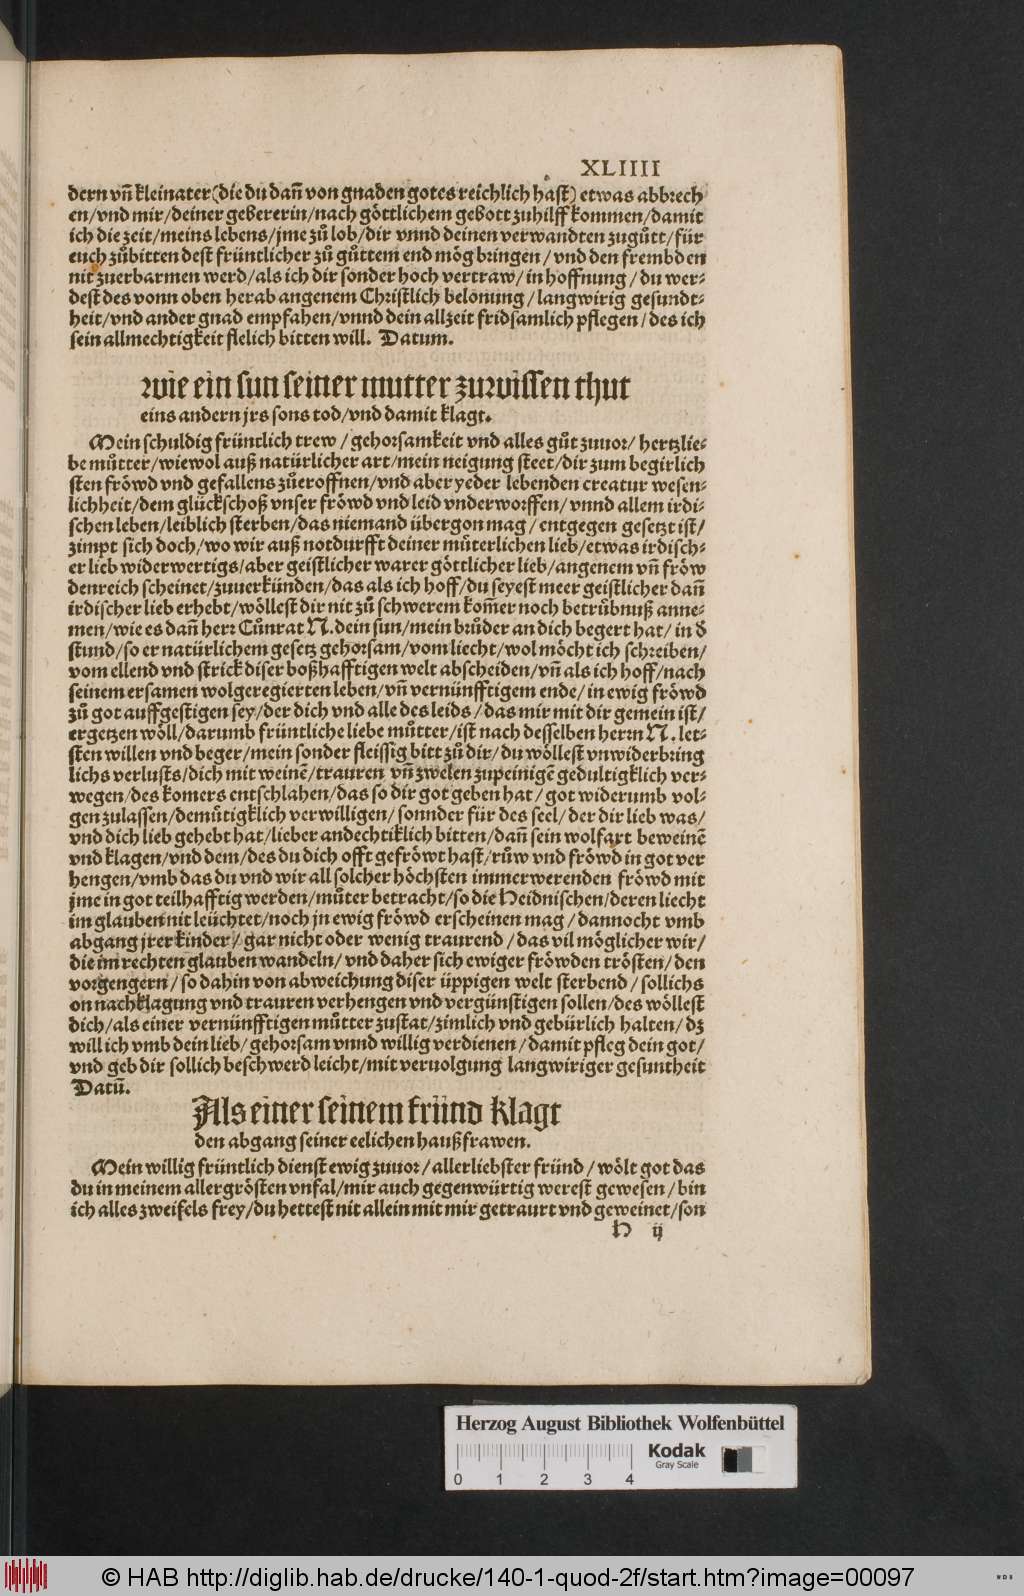 XLIIII
dern vñ kleinater (die du dañ von gnaden gotes reichlich hast) etwas abbrech
en/vnd mir/deiner gebererin/nach göttlichem gebott zuhilff kommen/damit
ich die zeit/meins lebens/jme zů lob/dir vnnd deinen verwandten zugůtt/für
euch zůbitten dest früntlicher zů gůttem end mög bringen/vnd den frembden
nit zuerbarmen werd/als ich dir sonder hoch vertraw/in hoffnung/du wer⸗
dest des vonn oben herab angenem Christlich belonung/langwirig gesundt⸗
heit/vnd ander gnad empfahen/vnnd dein allzeit fridsamlich pflegen/des ich
sein allmechtigkeit flelich bitten will. Datum.
wie ein sun seiner mutter zuwissen thut
eins andern jrs sons tod/vnd damit klagt.
Mein schuldig früntlich trew/gehorsamkeit vnd alles gůt zuuor/hertzlie⸗
be můtter/wiewol auß natürlicher art/mein neigung steet/dir zum begirlich
sten fröwd vnd gefallens zůeroffnen/vnd aber yeder lebenden creatur wesen⸗
lichheit/dem glückschoß vnser fröwd vnd leid vnderworffen/vnnd allem irdi⸗
schen leben/leiblich sterben/das niemand übergon mag/entgegen gesetzt ist/
zimpt sich doch/wo wir auß notdurfft deiner můterlichen lieb/etwas irdisch⸗
er lieb widerwertigs/aber geistlicher warer göttlicher lieb/angenem vñ fröw
denreich scheinet/zuuerkünden/das als ich hoff/du seyest meer geistlicher dañ
irdischer lieb erhebt/wöllest dir nit zů schwerem kom̄er noch betrůbnuß anne⸗
men/wie es dañ herr Cůnrat N. dein sun/mein brůder an dich begert hat/in d̕
stund/so er natürlichem gesetz gehorsam/vom liecht/wol möcht ich schreiben/
vom ellend vnd strick diser boßhafftigen welt abscheiden/vñ als ich hoff/nach
seinem ersamen wolgeregierten leben/vñ vernünfftigem ende/in ewig fröwd
zů got auffgestigen sey/der dich vnd alle des leids/das mir mit dir gemein ist/
ergetzen wöll/darumb früntliche liebe můtter/ist nach desselben herrn N. let⸗
sten willen vnd beger/mein sonder fleissig bitt zů dir/du wöllest vnwiderbring
lichs verlusts/dich mit weinē/trauren vñ zwelen zupeinigē gedultigklich ver⸗
wegen/des komers entschlahen/das so dir got geben hat/got widerumb vol⸗
gen zulassen/demůtigklich verwilligen/sonnder für des seel/der dir lieb was/
vnd dich lieb gehebt hat/lieber andechtiklich bitten/dañ sein wolfart beweinē
vnd klagen/vnd dem/des du dich offt gefröwt hast/růw vnd fröwd in got ver
hengen/vmb das du vnd wir all solcher höchsten immerwerenden fröwd mit
jme in got teilhafftig werden/můter betracht/so die Heidnischen/deren liecht
im glauben nit leüchtet/noch jn ewig fröwd erscheinen mag/dannocht vmb
abgang jrer kinder/gar nicht oder wenig traurend/das vil möglicher wir/
die im rechten glauben wandeln/vnd daher sich ewiger fröwden trösten/den
vorgengern/so dahin von abweichung diser üppigen welt sterbend/sollichs
on nachklagung vnd trauren verhengen vnd vergünstigen sollen/des wöllest
dich/als einer vernünfftigen můtter zustat/zimlich vnd gebürlich halten/dz
will ich vmb dein lieb/gehorsam vnnd willig verdienen/damit pfleg dein got/
vnd geb dir sollich beschwerd leicht/mit veruolgung langwiriger gesuntheit
Datū.
Als einer seinem fründ klagt
den abgang seiner eelichen haußfrawen.
Mein willig früntlich dienst ewig zuuor/allerliebster fründ/wölt got das
du in meinem allergrösten vnfal/mir auch gegenwürtig werest gewesen/bin
ich alles zweifels frey/du hettest nit allein mit mir getraurt vnd geweinet/son
H ij
Herzog August Bibliothek Wolfenbüttel
Kodak
Gray Scale
0 1 2 3 4
© HAB http://diglib.hab.de/drucke/140-1-quod-2f/start.htm?image=00097